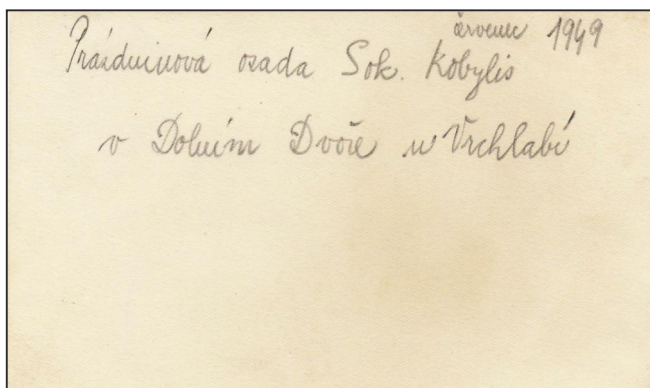 červenec 1949
Prázdninová osada Sok. Kobylis
v Dolním Dvoře u Vrchlabí